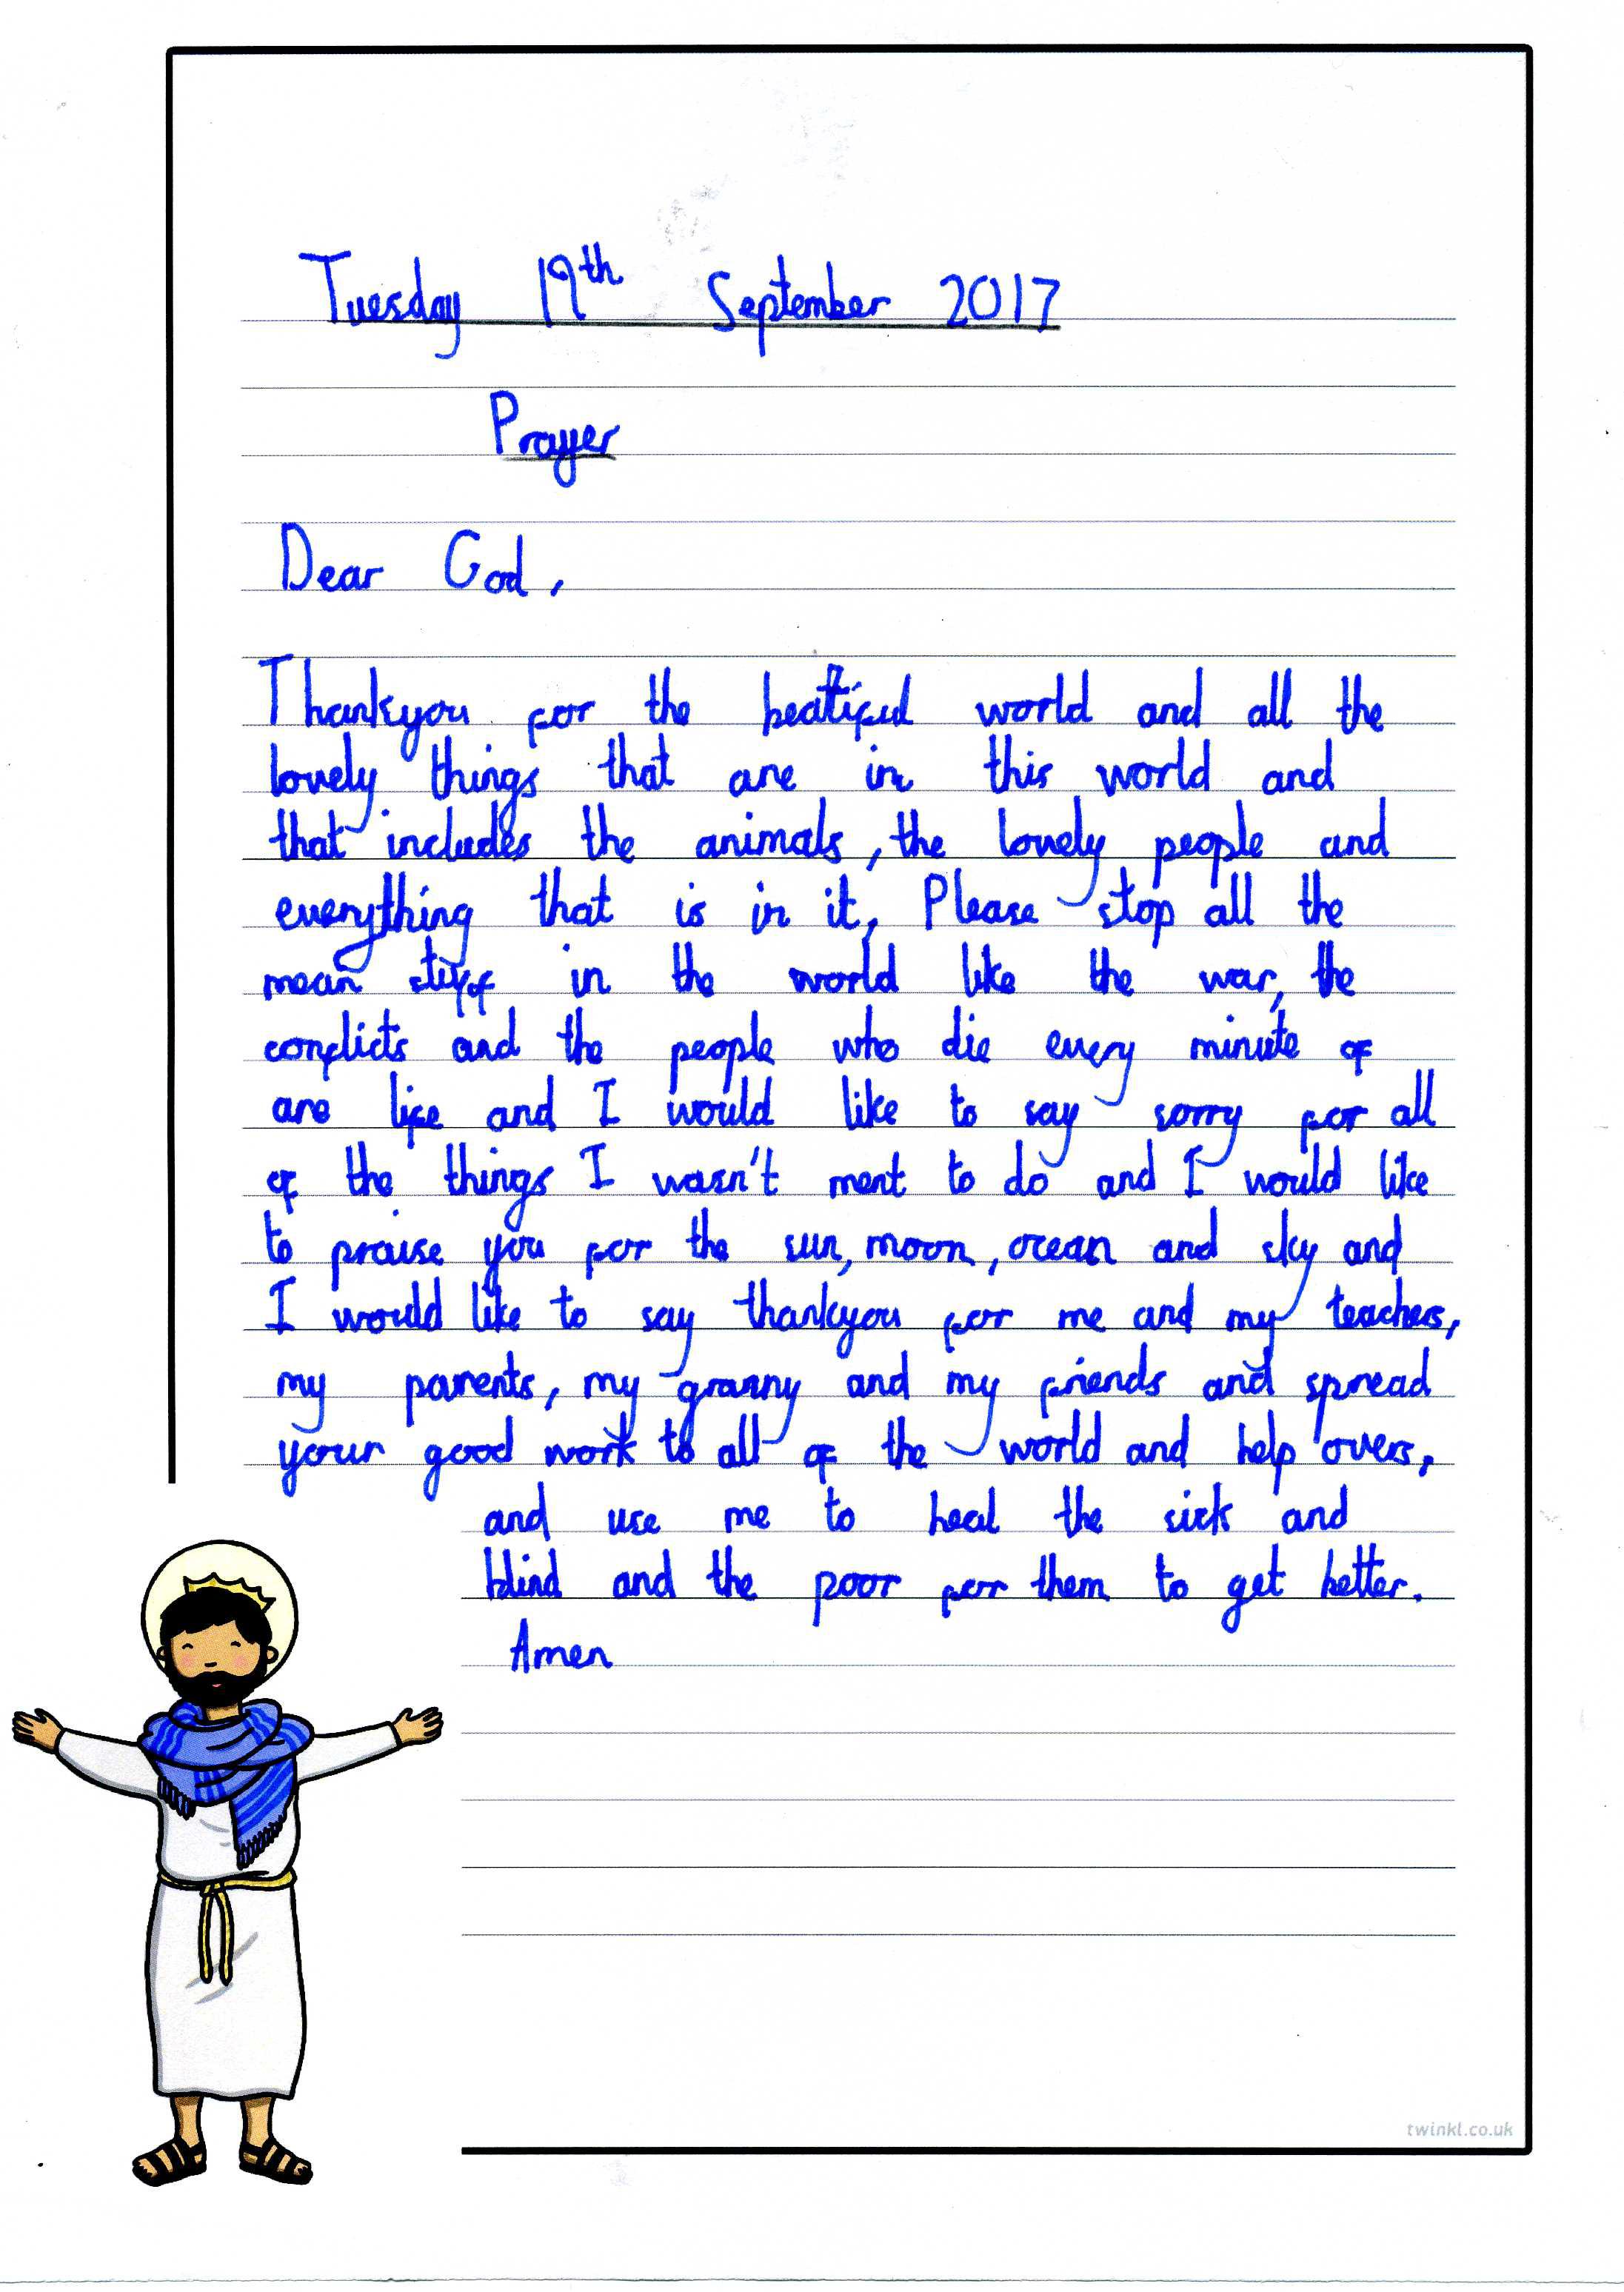 Tuesday 19th September 2017
Prayer
Dear God,
Thankyou for the beatiful world and all the
lovely things that are in this world and
that includes the animals, the lovely people and
everything that is in it, Please stop all the
mean stuff in the world like the war, the
conflicts and the people who die every minute of
are life and I would like to say sorry for all
of the things I wasn't ment to do and I would like
to praise you for the sun, moon, ocean and sky and
I would like to say thankyou for me and my teachers,
my parents, my granny and my friends and spread
your good work to all of the world and help overs,
and use me to heal the sick and
blind and the poor for them to get better.
Amen
twinkl.co.uk